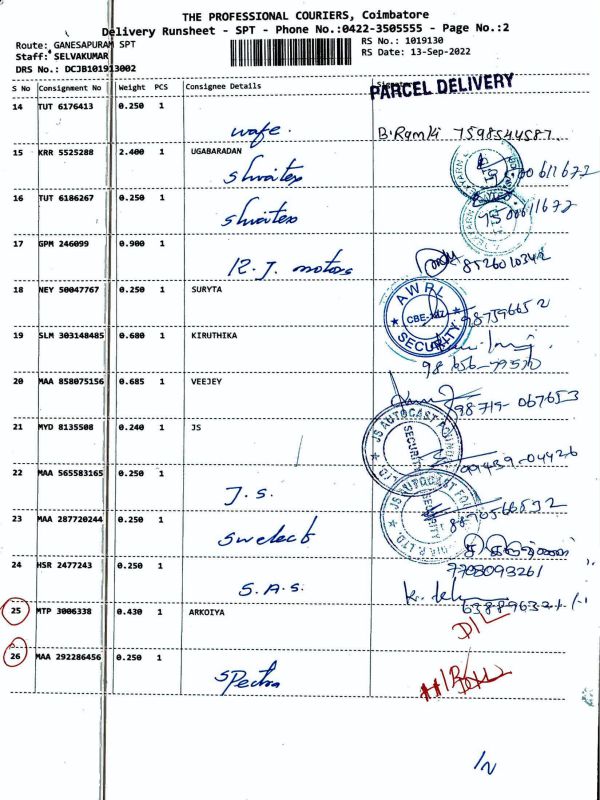 THE PROFESSIONAL COURIERS, Coimbatore
Delivery Runsheet - SPT - Phone No.:0422-3505555 - Page No.:2
Route: GANESAPURAM SPT
RS No.: 1019130
Staff: SELVAKUMAR
RS Date: 13-Sep-2022
DRS No.: DCJB101913002
S No Consignment No Weight PCS Consignee Details
PARCEL DELIVERY
14 TUT 6176413 0.250 1
wafe. B.Ramki 7598544587
15 KRR 5525288 2.400 1 UGABARADAN
16 TUT 6186267 0.250 1
17 GPM 246099 0.900 1
R.J. motors 8526010342
18 NEY 50047767 0.250 1 SURYTA
AWPL
CBE
SECURITY
19 SLM 303148485 0.680 1 KIRUTHIKA
20 MAA 858075156 0.685 1 VEEJEY
98719-067653
21 MYD 8135508 0.240 1 JS
JS AUTOCAST
SECURITY
99439-04426
22 MAA 565583165 0.250 1
J.S.
JS AUTOCAST
SECURITY
23 MAA 287720244 0.250 1
swelect
24 HSR 2477243 0.250 1
7708093261
S.A.S.
25 MTP 3006338 0.430 1 ARKOIYA
D/L
26 MAA 292286456 0.250 1
Spectra